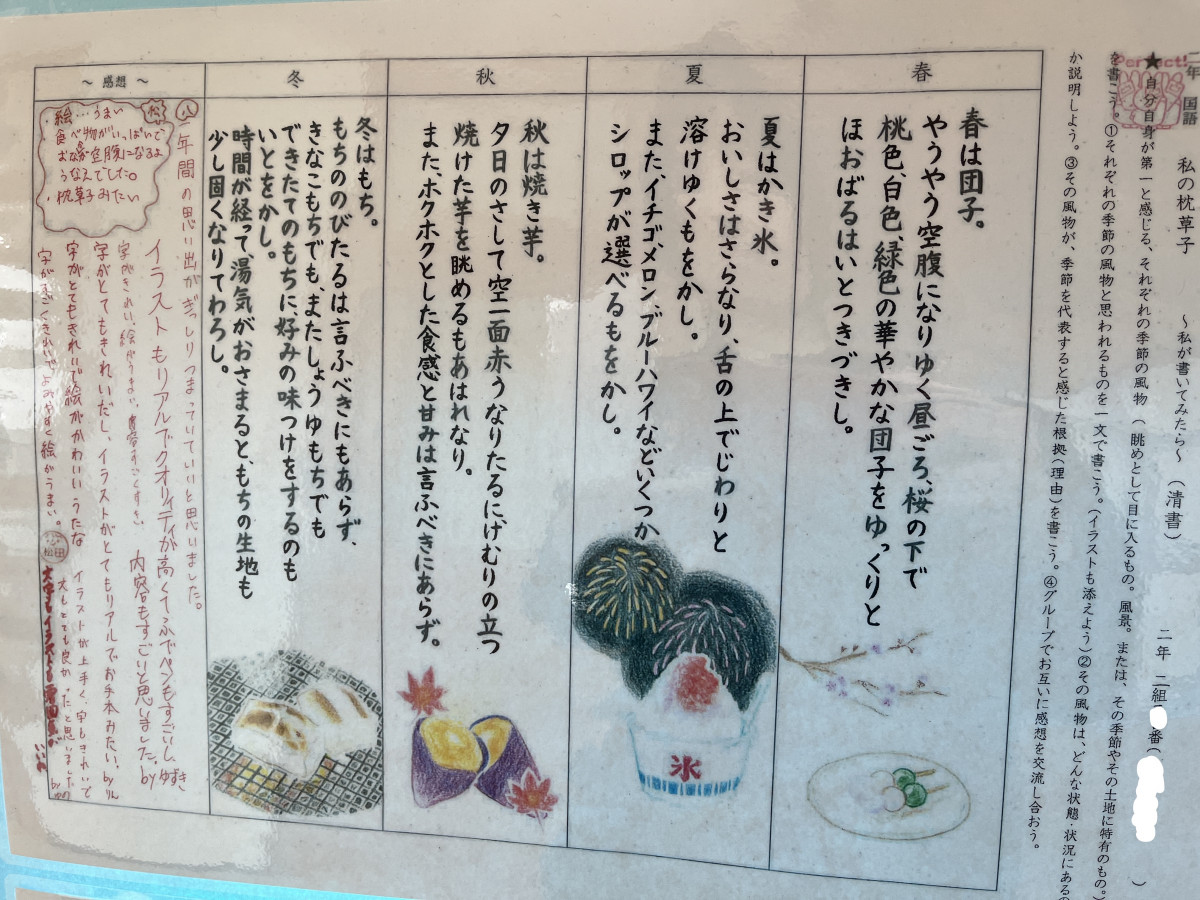 二年 国語
私の枕草子 ～私が書いてみたら～ (清書) 二年 二組 番( )
Perfect!
★自分自身が第一と感じる、それぞれの季節の風物(眺めとして目に入るもの。風景。または、その季節やその土地に特有のもの。)
を書こう。①それぞれの季節の風物と思われるものを一文で書こう。(イラストも添えよう)②その風物は、どんな状態・状況にあるの
か説明しよう。③その風物が、季節を代表すると感じた根拠(理由)を書こう。④グループでお互いに感想を交流し合おう。
春
春は団子。
やうやう空腹になりゆく昼ごろ、桜の下で
桃色、白色、緑色の華やかな団子をゆっくりと
ほおばるはいとつきづきし。
夏
夏はかき氷。
おいしさはさらなり、舌の上でじわりと
溶けゆくもをかし。
また、イチゴ、メロン、ブルーハワイなどいくつか
シロップが選べるもをかし。
氷
秋
秋は焼き芋。
夕日のさして空一面赤うなりたるに、けむりの立つ
焼けた芋を眺めるもあはれなり。
また、ホクホクとした食感と甘みは言ふべきにあらず。
冬
冬はもち。
もちののびたるは言ふべきにもあらず、
きなこもちでも、またしょうゆもちでも
できたてのもちに、好みの味つけをするのも
いとをかし。
時間が経って、湯気がおさまると、もちの生地も
少し固くなりてわろし。
～感想～
・絵…うまい
・食べ物がいっぱいで
お腹が空腹になるよ
うなんでした。
・枕草子みたい
八年間の思い出がぎっしりつまっていていいと思いました。
イラストもリアルでクオリティが高くてふでペンもすごいし
内容もすごいと思いました。byゆずき
字がきれい、絵がうまい、
字がとてもきれいだし、イラストがとてもリアルでお手本みたい。byりん
字がとてもきれいで絵がかわいいうたな
イラストが上手く、字もきれいで
文もとても良かったと思いました
字がすごくきれいでよみやすく絵がうまい。